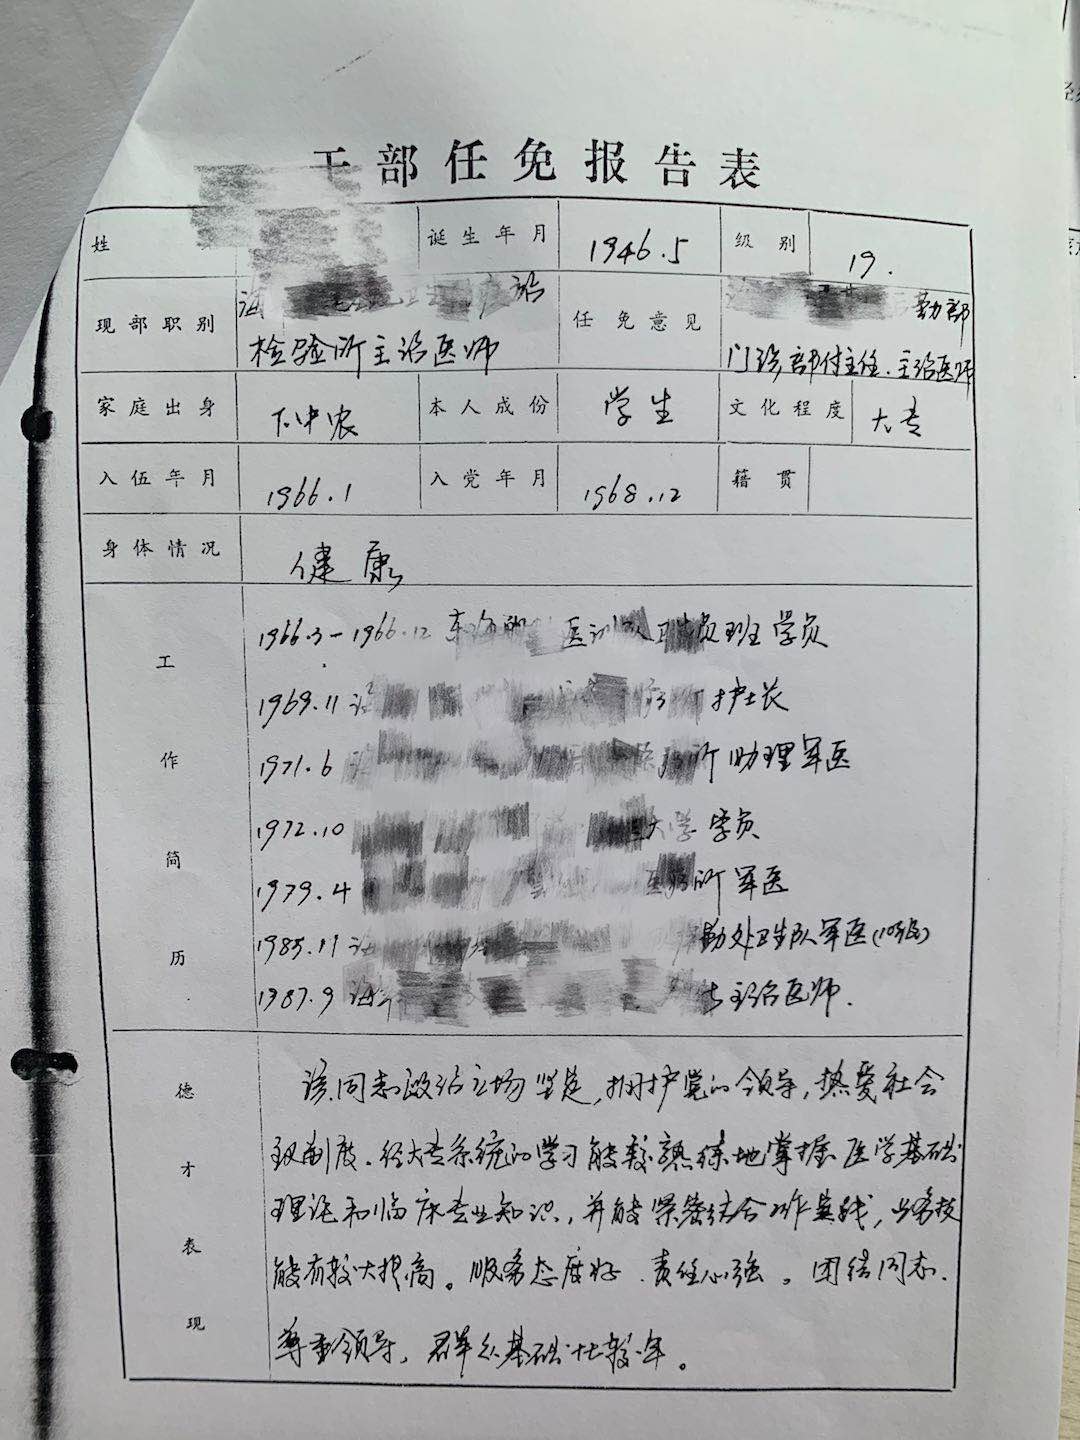 干部任免报告表
姓 诞生年月 1946.5 级别 19.
现部职别 检验所主治医师
任免意见 勤部
门诊部付主任.主治医师
家庭出身 下中农 本人成份 学生 文化程度 大专
入伍年月 1966.1 入党年月 1968.12 籍贯
身体情况 健康
工作简历
1966.3-1966.12 医训队卫生员班学员
1969.11 护士长
1971.6 所助理军医
1972.10 大学学员
1979.4 医务所军医
1985.11 勤处卫生队军医
1987.9 主治医师.
德才表现
该同志政治立场坚定,拥护党的领导,热爱社会
制度。经大专系统的学习能较熟练地掌握医学基础
理论和临床专业知识,并能紧密结合工作实践,业务技
能有较大提高。服务态度好.责任心强。团结同志.
尊重领导,群众基础比较牢。